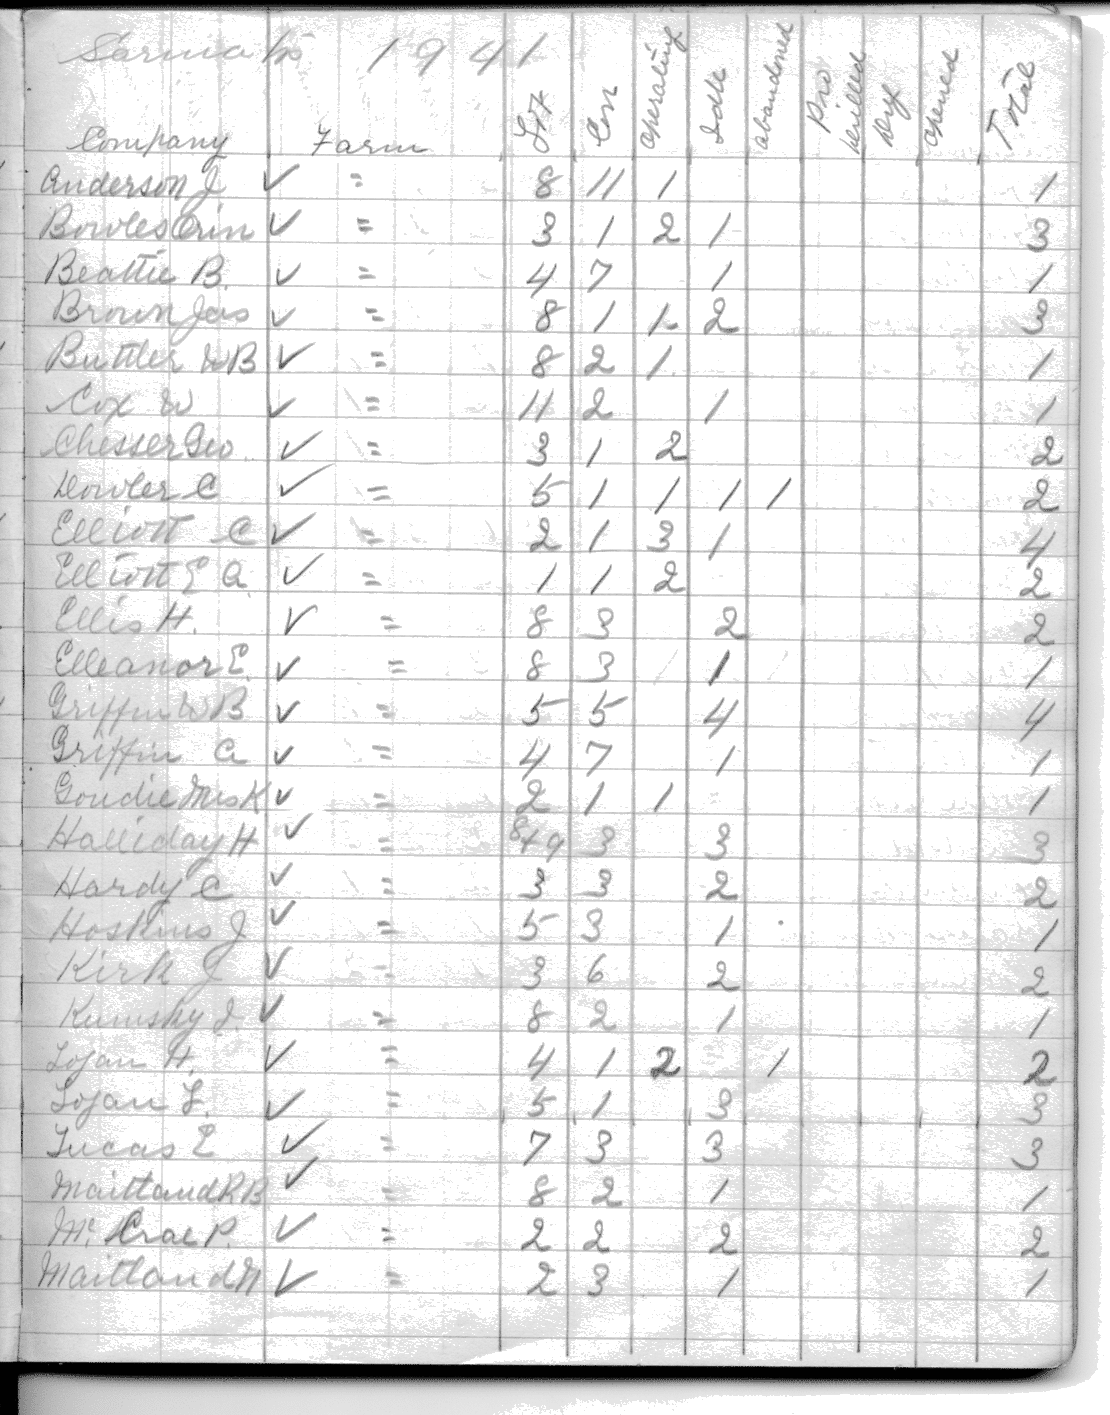 Sarnia 1941
Company Farm Lot Con operating Idle abandoned Pro drilled Dry opened Total
Anderson J ✓ = 8 11 1 1
Bowles Orin ✓ = 3 1 2 1 3
Beattie B. ✓ = 4 7 1 1
Brown Jas ✓ = 8 1 1 2 3
Buttler W B ✓ = 8 2 1 1
Cox W ✓ = 11 2 1 1
Chesser Geo ✓ = 3 1 2 2
Dowler C ✓ = 5 1 1 1 1 2
Elliott C ✓ = 2 1 3 1 4
Elliott E A ✓ = 1 1 2 2
Ellis H. ✓ = 8 3 2 2
Elleanor E. ✓ = 8 3 1 1
Griffin W B ✓ = 5 5 4 4
Griffin A ✓ = 4 7 1 1
Goudie Mrs K ✓ = 2 1 1 1
Halliday H ✓ = 8+9 3 3 3
Hardy C ✓ = 3 3 2 2
Hoskins J ✓ = 5 3 1 1
Kirk J ✓ = 3 6 2 2
Kumsky J. ✓ = 8 2 1 1
Logan H. ✓ = 4 1 2 1 2
Logan L. ✓ = 5 1 3 3
Lucas E ✓ = 7 3 3 3
Maitland R B ✓ = 8 2 1 1
Mc Crae P. ✓ = 2 2 2 2
Maitland N ✓ = 2 3 1 1